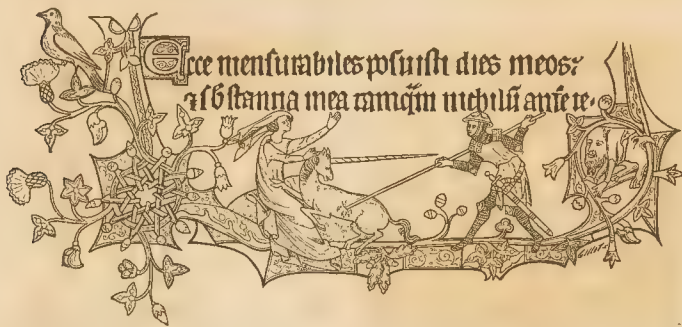 Ecce mensurabiles posuisti dies meos:
⁊ sbstantia mea tamq̃m nichilũ ante te.